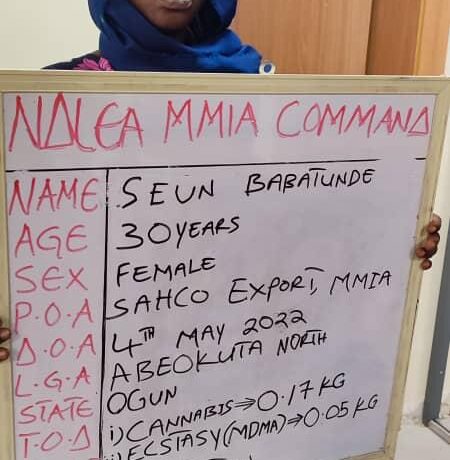 NDLEA MMIA COMMAND
NAME SEUN BABATUNDE
AGE 30YEARS
SEX FEMALE
P.O.A SAHCO EXPORT, MMIA
D.O.A 4TH MAY 2022
L.G.A ABEOKUTA NORTH
STATE OGUN
T.O.D i) CANNABIS⇒0.17KG
ii) ECSTASY (MDMA)⇒0.05KG